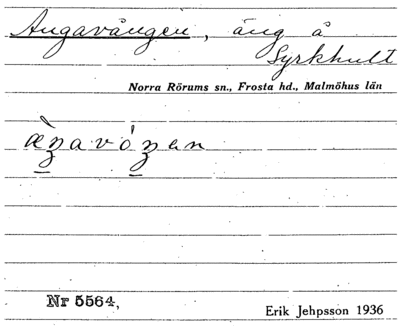 Ängavången, äng å
Syrkhult
Norra Rörums sn., Frosta hd., Malmöhus län
Nr 5564,
Erik Jehpsson 1936